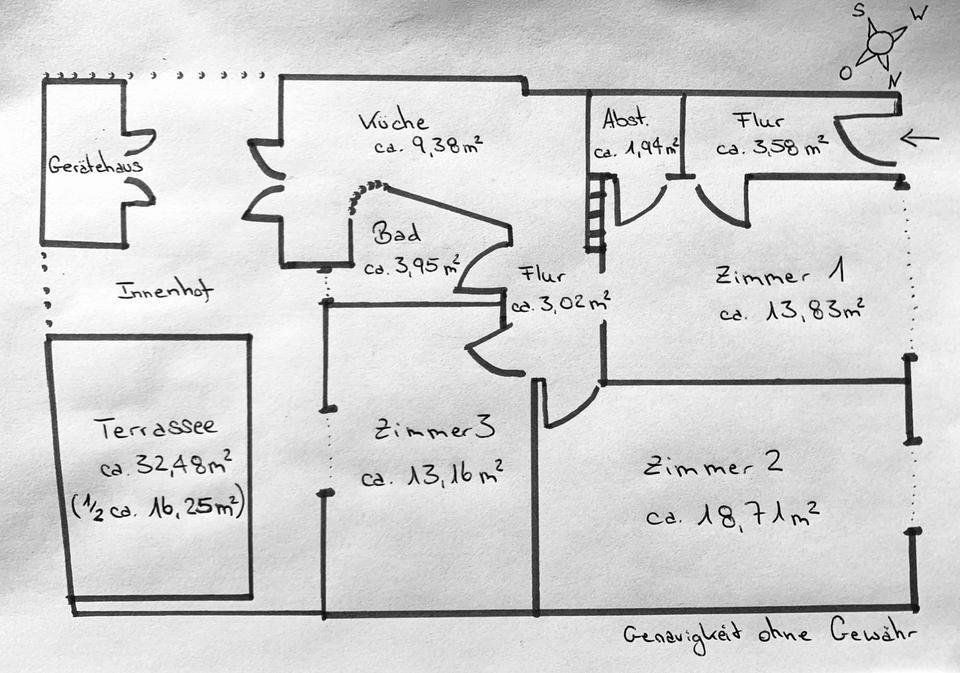 S W
O N
Küche
ca. 9,38m²
Abst.
ca. 1,94m²
Flur
ca. 3,58m²
Gerätehaus
Bad
ca. 3,95m²
Flur
ca. 3,02m²
Zimmer 1
ca. 13,83m²
Innenhof
Terrassee
ca. 32,48m²
(1/2 ca. 16,25m²)
Zimmer 3
ca. 13,16m²
Zimmer 2
ca. 18,71m²
Genauigkeit ohne Gewähr